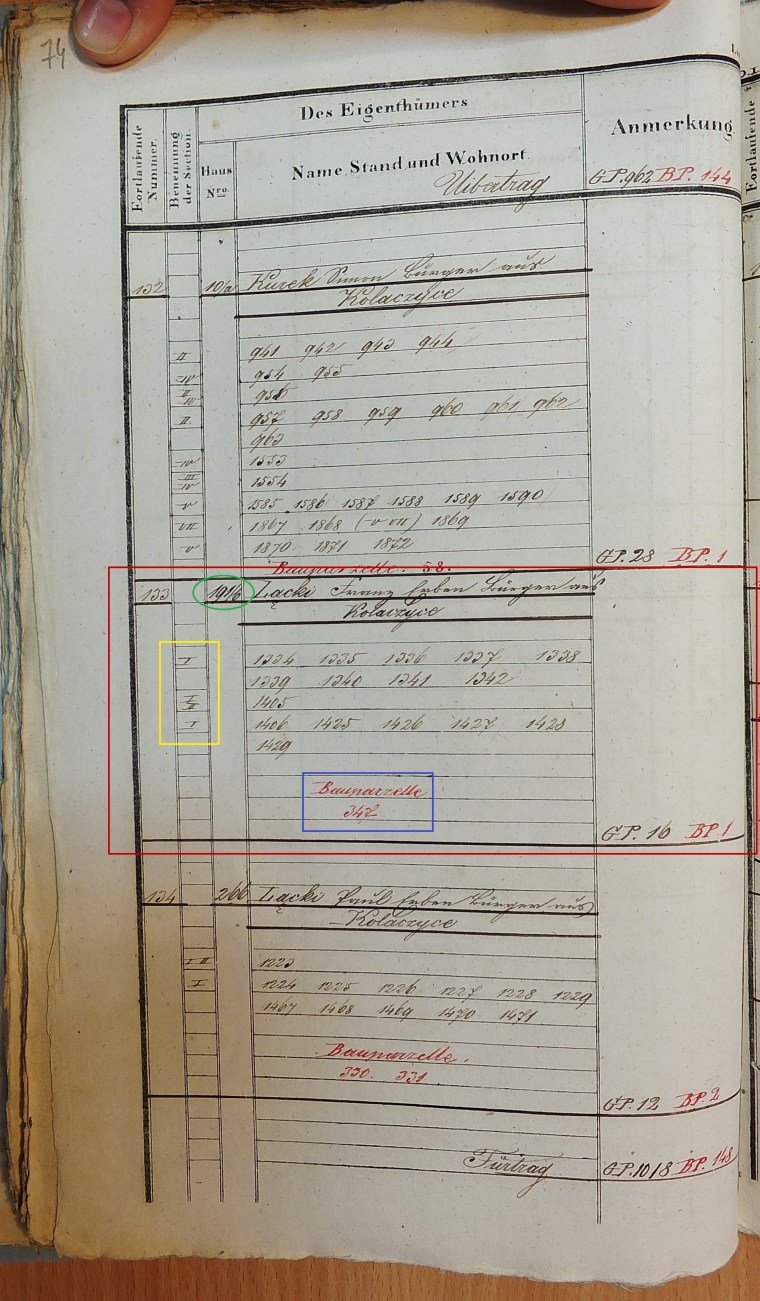 74
Des Eigenthümers
Fortlaufende Nummer.
Benennung der Section.
Haus Nro.
Name, Stand und Wohnort.
Anmerkung
Uibertrag GP. 962 BP. 144
132 10/a Kurek Simon Bürger aus
Kołaczyce
II 941 942 943 944
954 955
956
II. 957 958 959 960 961 962
963
IV 1553
1554
V 1585 1586 1587 1588 1589 1590
VII 1867 1868 (V VII) 1869
V 1870 1871 1872
Bauparzelle. 58. GP. 28 BP. 1
133 191/b Łącki Franz Erben Bürger aus
Kołaczyce
I 1334 1335 1336 1337 1338
1339 1340 1341 1342
I II 1405
I 1406 1425 1426 1427 1428
1429
Bauparzelle
347
GP. 16 BP. 1
134 266 Łącki Paul Erben Bürger aus
Kołaczyce
I II 1223
I 1224 1225 1226 1227 1228 1229
1467 1468 1469 1470 1471
Bauparzelle.
330. 331
GP. 12 BP. 2
Fürtrag GP. 1018 BP. 148
Fortlaufende